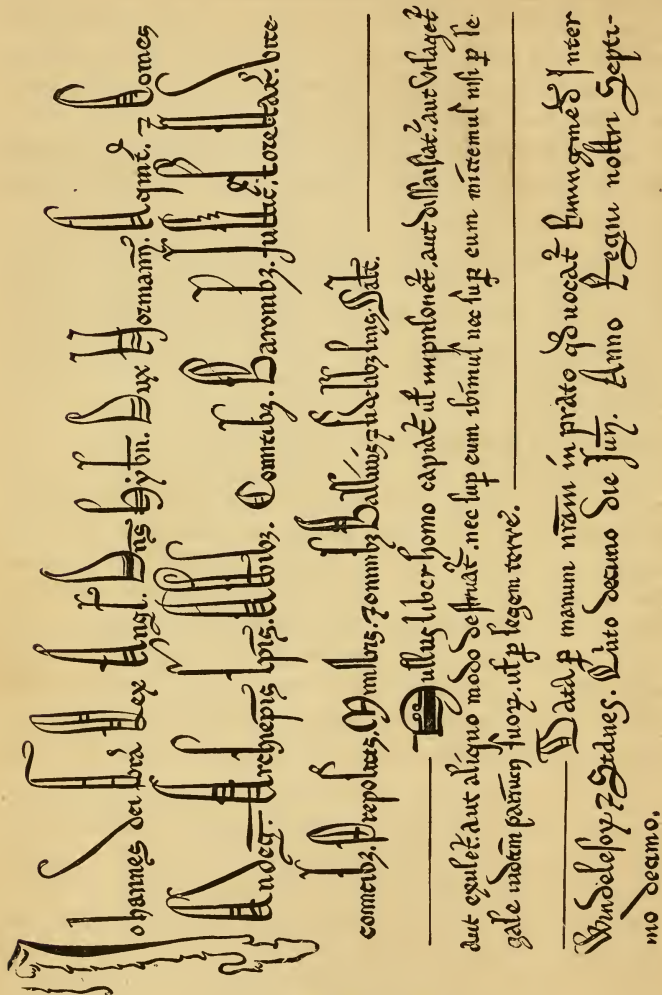 Johannes dei grā Rex Angl. Dns Hybn. Dux Normann. Aqmt. ⁊ Comes
Andeg. Archiepis Epis. Abbibz. Comitibz. Baronibz. Justic̄. forestar̄. vice-
comitibz. Prepositis. Ministris. ⁊ omnibz Ballivis ⁊ fidelibz suis. Salt̄.
Nullus liber homo capiat̄ ut̄ imprisonet̄, aut dissaisiat̄. aut utlaget̄
aut exulet̄. aut aliquo modo destruat̄. nec sup eum ibimus nec sup eum mittemus nisi p le
gale iudicium parium suoꝝ. ut̄ p legem terre.
Data p manum nrām in prato qd vocat̄ Runingmed̄ Inter
Windelesoꝝ ⁊ Stanes. Quinto decimo die Jun̄. Anno Regni nostri Septi-
mo decimo.